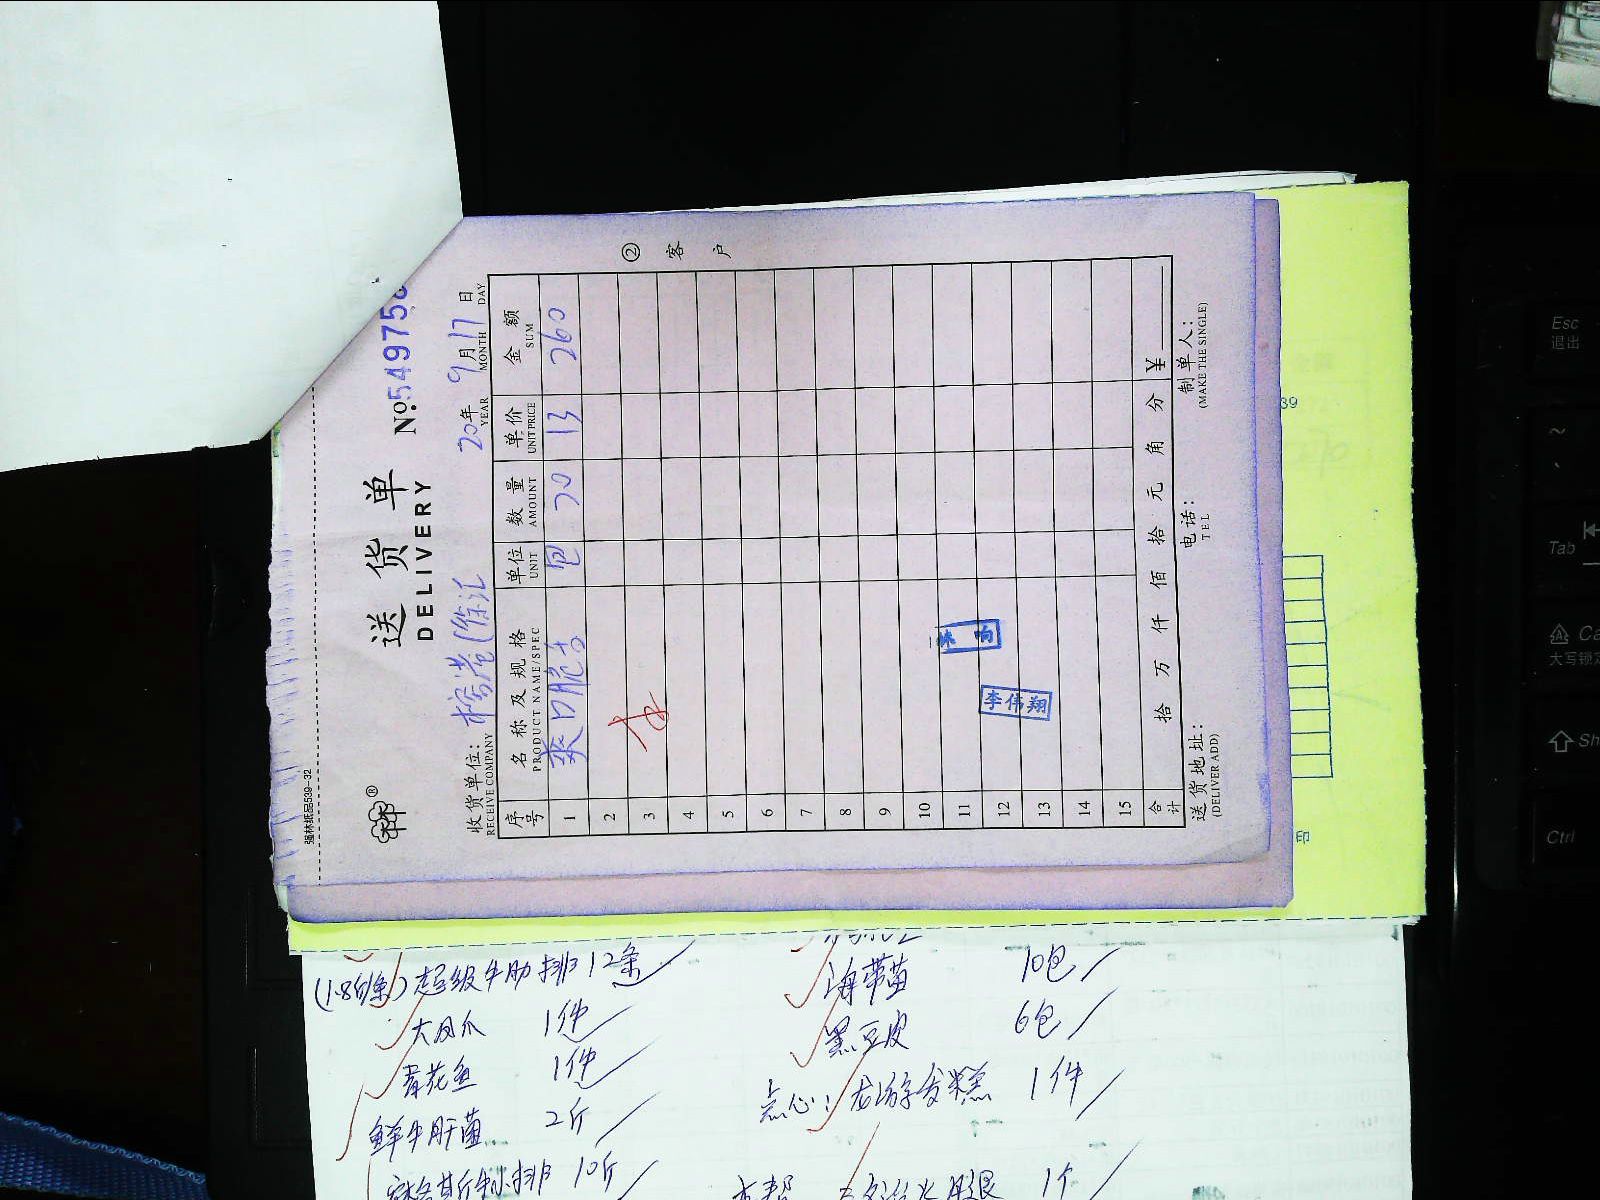 强林纸品539-32
®
送货单
DELIVERY
No. 549758
收货单位: 榕港(徐汇
RECEIVE COMPANY
20年 9月17日
YEAR MONTH DAY
序号 名称及规格 单位 数量 单价 金额
PRODUCT NAME/SPEC UNIT AMOUNT UNIT PRICE SUM
1 爽口脆舌 包 20 13 260
2
3
4
5
6
7
8
9
10
11
12
13
14
15
味 响
李伟翔
合计 拾 万 仟 佰 拾 元 角 分 ¥
送货地址: 电话: 制单人:
(DELIVER ADD) TEL (MAKE THE SINGLE)
② 客户
39
印
(1.8斤/条) 超级牛肋排 12条
大凤爪 1件
青花鱼 1件
鲜牛肝菌 2斤
排 10斤
海带苗 10包
黑豆皮 6包
点心: 龙游发糕 1件
腿 1个
Esc
退出
~
Tab
Ca
大写锁定
Sh
Ctrl